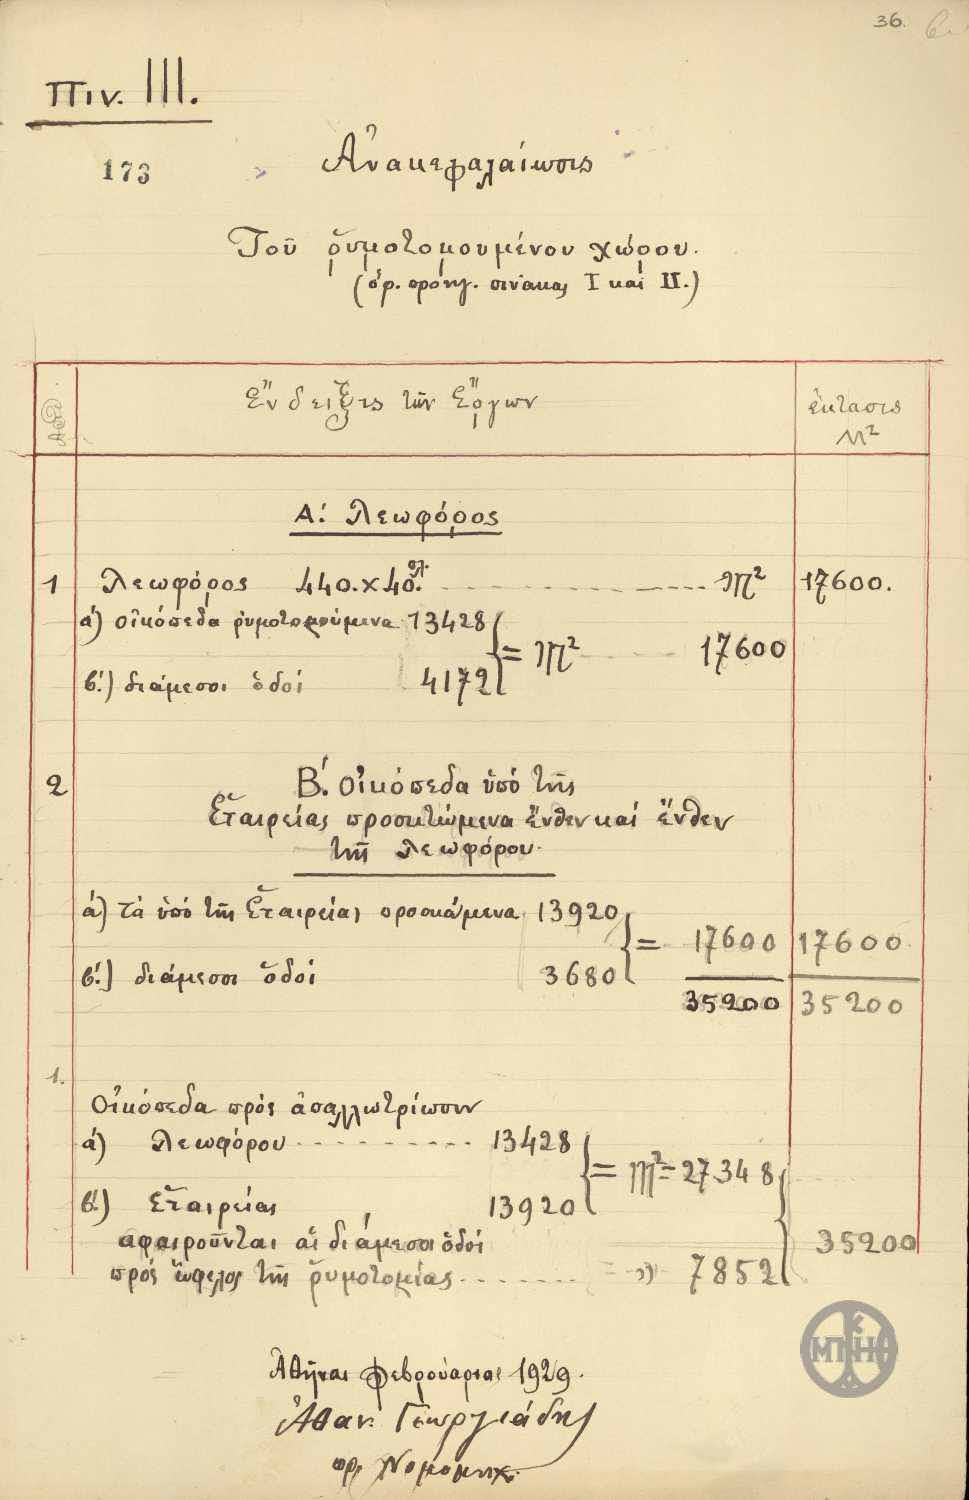 36.
Πιν. III.
173
Ἀνακεφαλαίωσις
Τοῦ ῥυμοτομουμένου χώρου.
(ὁρ. προηγ. πίνακας I καί II.)
Αριθ. Ἔνδειξις τῶν Ἔργων ἔκτασις
Μ²
Α: Λεωφόρος
1 Λεωφόρος 440.x40. μ². 17600.
ά) οἰκόπεδα ῥυμοτομούμενα 13428
= μ² 17600
β΄.) διάμεσοι ὁδοί 4172
2 Β΄. Οἰκόπεδα ὑπό τῆς
Ἑταιρείας προσκτώμενα ἔνθεν καί ἔνθεν
τῆς Λεωφόρου.
ά) τά ὑπό τῆς Ἑταιρείας προσκτώμενα 13920
= 17600 17600
β΄.) διάμεσοι ὁδοί 3680
35200 35200
1.
Οἰκόπεδα πρός ἀπαλλωτρίωσιν
ά) Λεωφόρου 13428
= μ² = 27348
β΄.) Ἑταιρείας 13920
αφαιροῦνται αἱ διάμεσοι ὁδοί 35200
πρός ὤφελος τῆς ῥυμοτομίας 〃 7852
ΜΠΗ
Ἀθῆναι Φεβρουάριος 1929.
Ἀθαν. Γεωργιάδης
πρ. Νομομηχ.